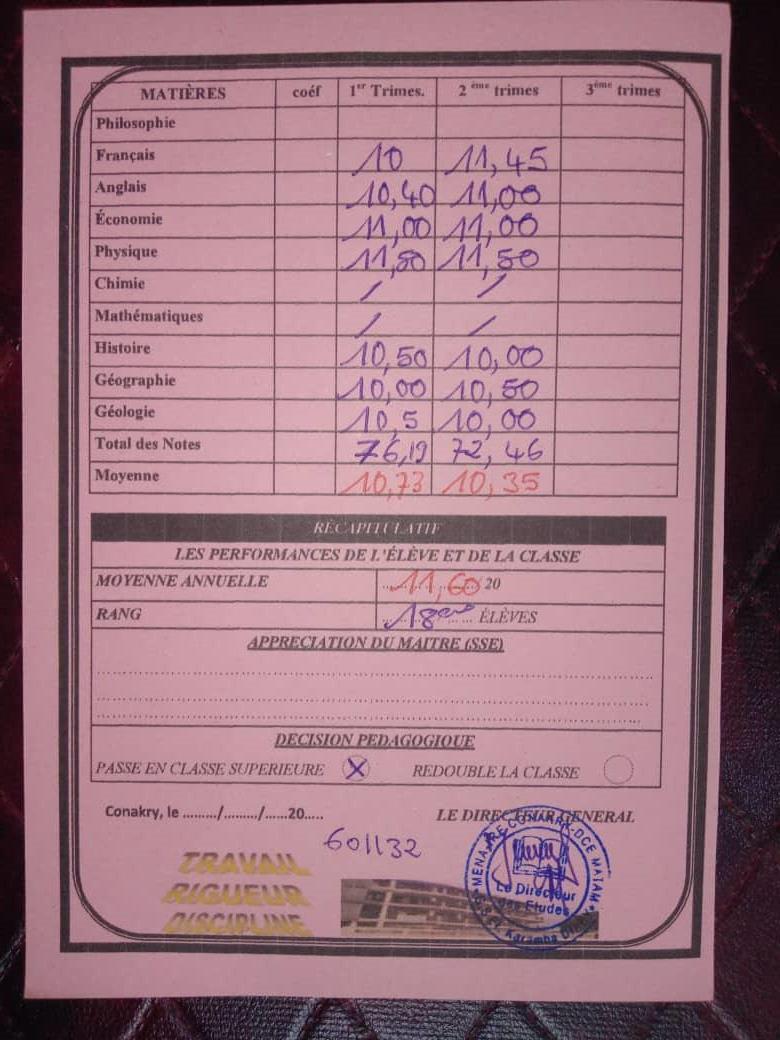 MATIÈRES coéf 1er Trimes. 2ème trimes 3ème trimes
Philosophie
Français 10 11,45
Anglais 10,40 11,00
Économie 11,00 11,00
Physique 11,50 11,50
Chimie / /
Mathématiques / /
Histoire 10,50 10,00
Géographie 10,00 10,50
Géologie 10,5 10,00
Total des Notes 76,19 72,46
Moyenne 10,73 10,35
RÉCAPITULATIF
LES PERFORMANCES DE L'ÉLÈVE ET DE LA CLASSE
MOYENNE ANNUELLE 11,60 20
RANG 18ème ÉLÈVES
APPRECIATION DU MAITRE (SSE)
DECISION PEDAGOGIQUE
PASSE EN CLASSE SUPERIEURE X REDOUBLE LA CLASSE
Conakry, le ........./........./.....20..... LE DIRECTEUR GENERAL
601132
TRAVAIL
RIGUEUR
DISCIPLINE
CONAKRY-DCE MATAM
Le Directeur
des Etudes
Karamba